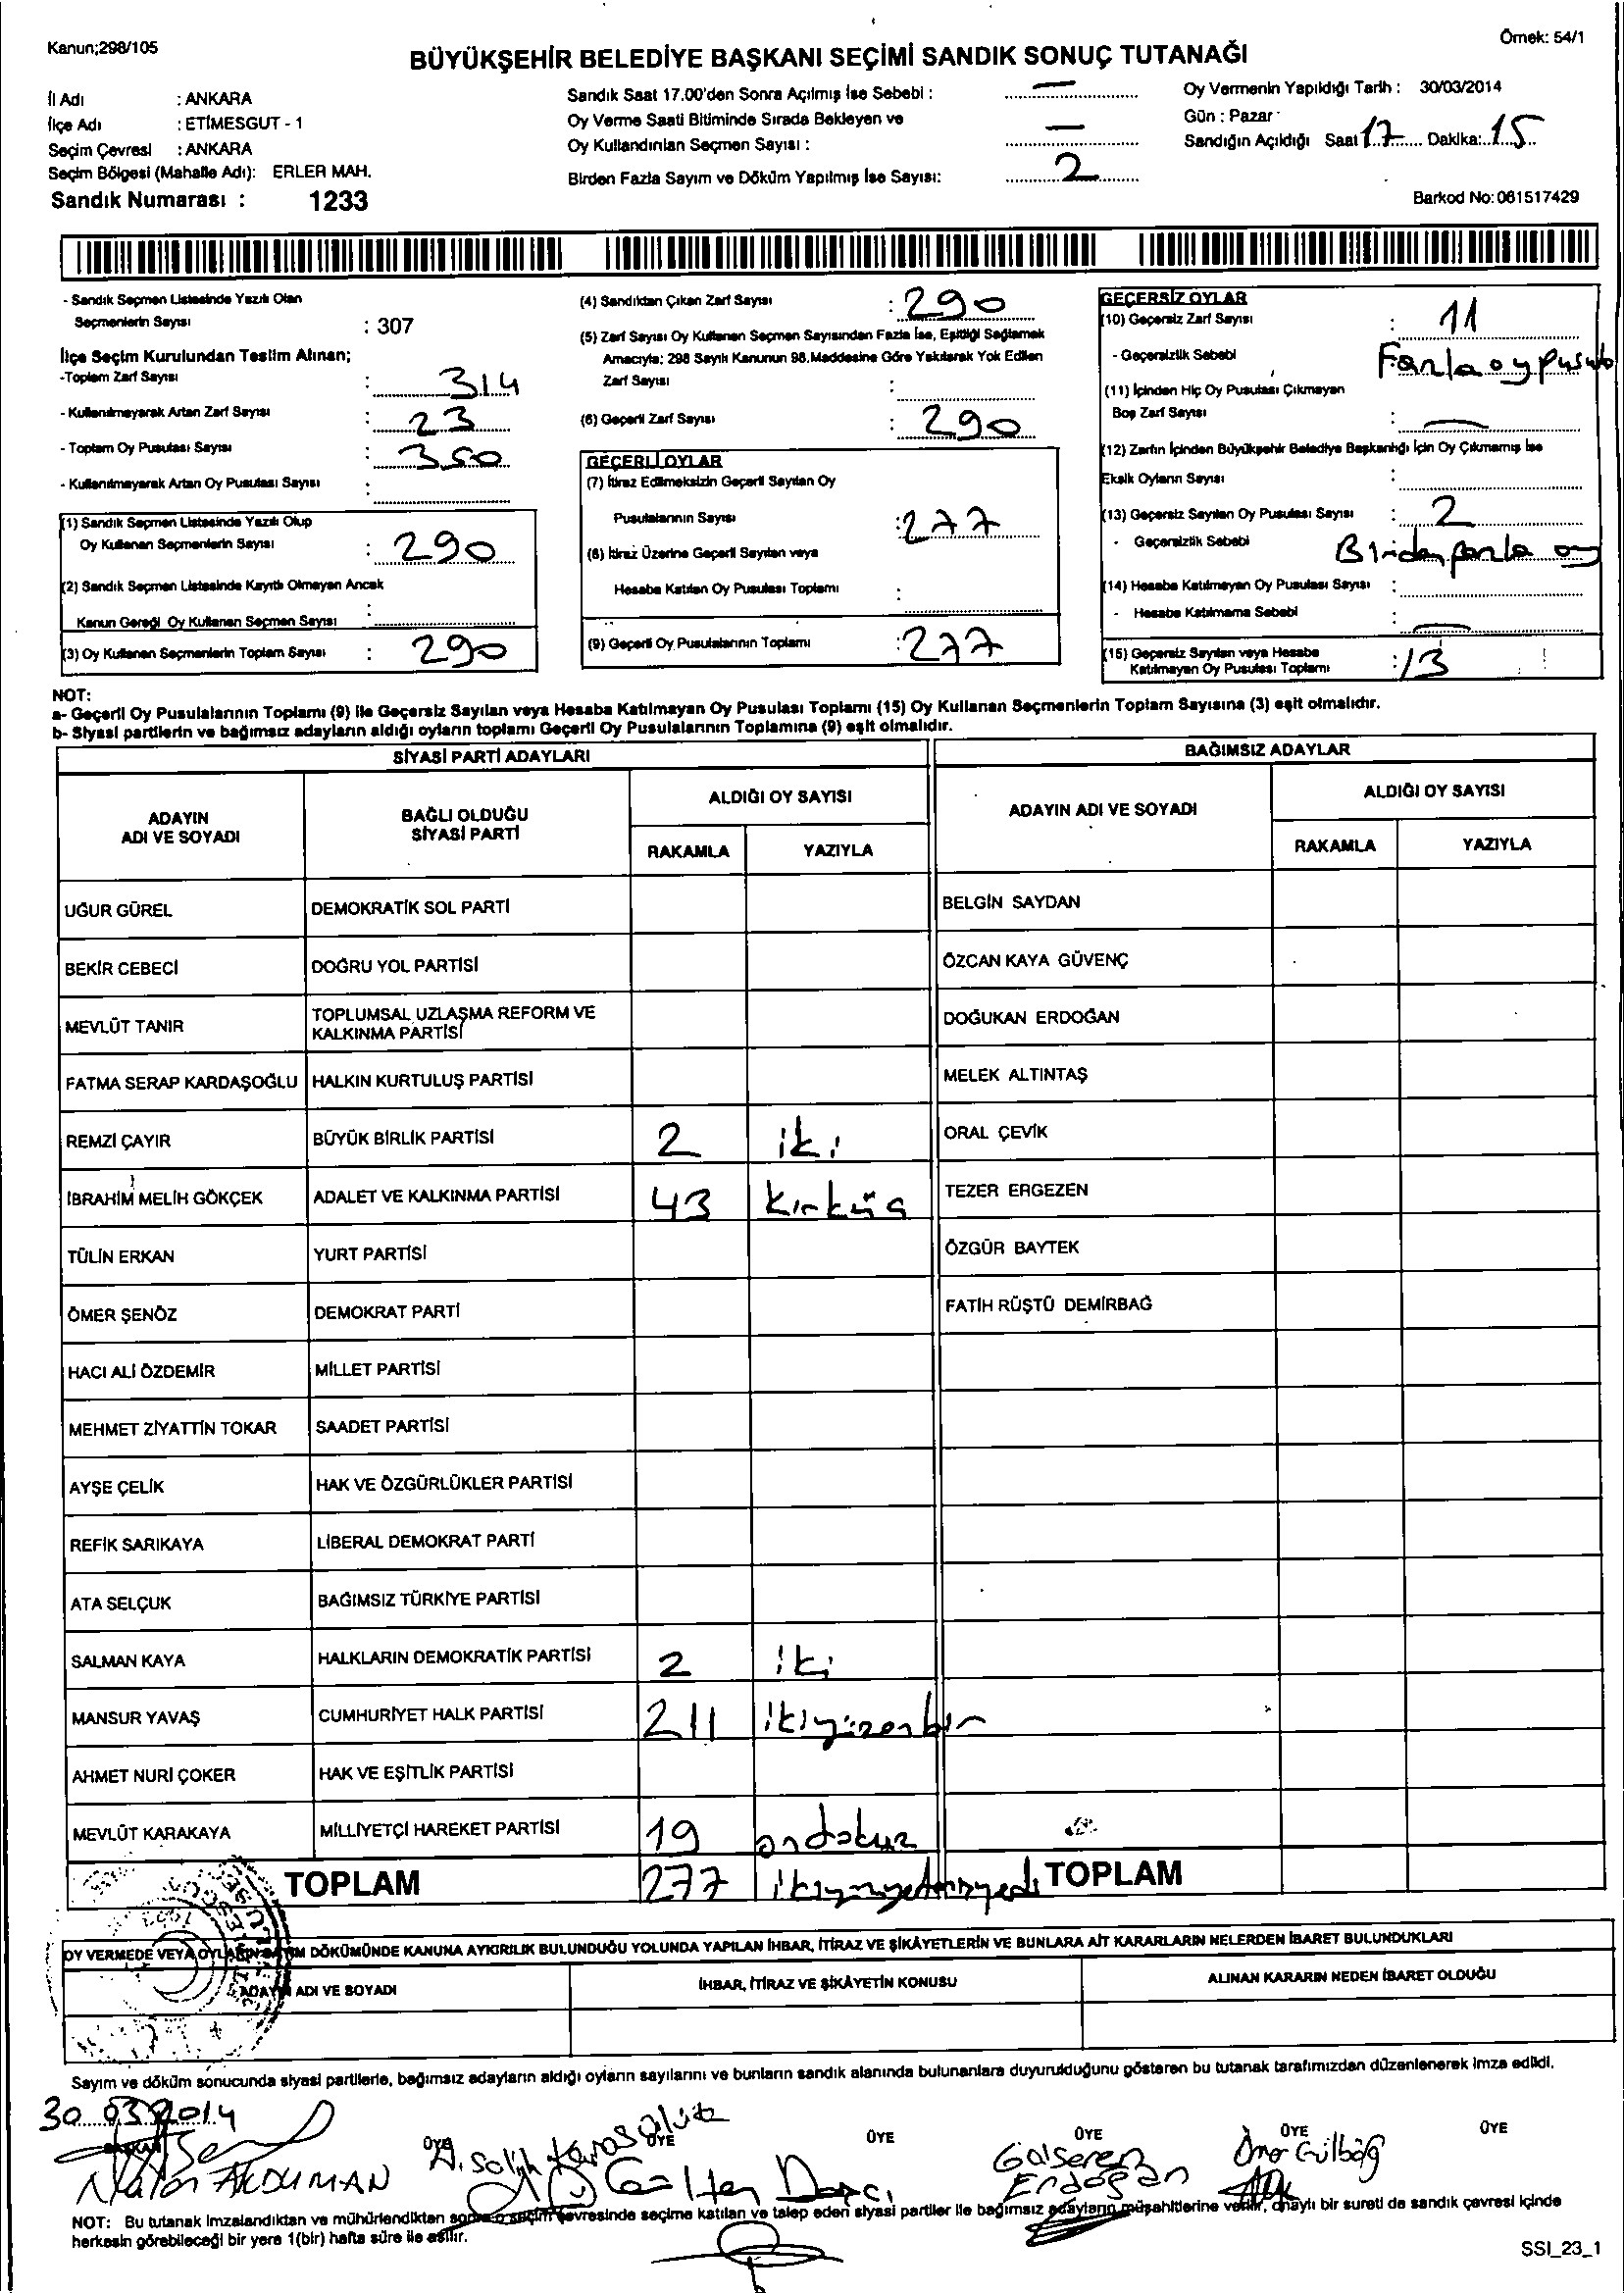 Kanun;298/105
Örnek: 54/1
BÜYÜKŞEHİR BELEDİYE BAŞKANI SEÇİMİ SANDIK SONUÇ TUTANAĞI
İl Adı : ANKARA
İlçe Adı : ETİMESGUT - 1
Seçim Çevresi : ANKARA
Seçim Bölgesi (Mahalle Adı): ERLER MAH.
Sandık Numarası : 1233
Sandık Saat 17.00'den Sonra Açılmış İse Sebebi : —
Oy Verme Saati Bitiminde Sırada Bekleyen ve
Oy Kullandırılan Seçmen Sayısı : —
Birden Fazla Sayım ve Döküm Yapılmış İse Sayısı: 2
Oy Vermenin Yapıldığı Tarih : 30/03/2014
Gün : Pazar
Sandığın Açıldığı Saat 17 Dakika: 15
Barkod No: 061517429
- Sandık Seçmen Listesinde Yazılı Olan
Seçmenlerin Sayısı : 307
İlçe Seçim Kurulundan Teslim Alınan;
-Toplam Zarf Sayısı : 314
- Kullanılmayarak Artan Zarf Sayısı : 23
- Toplam Oy Pusulası Sayısı : 350
- Kullanılmayarak Artan Oy Pusulası Sayısı :
(1) Sandık Seçmen Listesinde Yazılı Olup
Oy Kullanan Seçmenlerin Sayısı : 290
(2) Sandık Seçmen Listesinde Kayıtlı Olmayan Ancak
Kanun Gereği Oy Kullanan Seçmen Sayısı :
(3) Oy Kullanan Seçmenlerin Toplam Sayısı : 290
(4) Sandıktan Çıkan Zarf Sayısı : 290
(5) Zarf Sayısı Oy Kullanan Seçmen Sayısından Fazla İse, Eşitliği Sağlamak
Amacıyla; 298 Sayılı Kanunun 98.Maddesine Göre Yakılarak Yok Edilen
Zarf Sayısı :
(6) Geçerli Zarf Sayısı : 290
GEÇERLİ OYLAR
(7) İtiraz Edilmeksizin Geçerli Sayılan Oy
Pusulalarının Sayısı : 277
(8) İtiraz Üzerine Geçerli Sayılan veya
Hesaba Katılan Oy Pusulası Toplamı :
(9) Geçerli Oy Pusulalarının Toplamı : 277
GEÇERSİZ OYLAR
(10) Geçersiz Zarf Sayısı : 11
- Geçersizlik Sebebi Fazla oy pusula
(11) İçinden Hiç Oy Pusulası Çıkmayan
Boş Zarf Sayısı : —
(12) Zarfın İçinden Büyükşehir Belediye Başkanlığı İçin Oy Çıkmamış İse
Eksik Oyların Sayısı :
(13) Geçersiz Sayılan Oy Pusulası Sayısı : 2
- Geçersizlik Sebebi Birden fazla oy
(14) Hesaba Katılmayan Oy Pusulası Sayısı :
- Hesaba Katılmama Sebebi : —
(15) Geçersiz Sayılan veya Hesaba
Katılmayan Oy Pusulası Toplamı : 13
NOT:
a- Geçerli Oy Pusulalarının Toplamı (9) ile Geçersiz Sayılan veya Hesaba Katılmayan Oy Pusulası Toplamı (15) Oy Kullanan Seçmenlerin Toplam Sayısına (3) eşit olmalıdır.
b- Siyasi partilerin ve bağımsız adayların aldığı oyların toplamı Geçerli Oy Pusulalarının Toplamına (9) eşit olmalıdır.
SİYASİ PARTİ ADAYLARI
BAĞIMSIZ ADAYLAR
ADAYIN
ADI VE SOYADI
BAĞLI OLDUĞU
SİYASİ PARTİ
ALDIĞI OY SAYISI
RAKAMLA YAZIYLA
ADAYIN ADI VE SOYADI
ALDIĞI OY SAYISI
RAKAMLA YAZIYLA
UĞUR GÜREL DEMOKRATİK SOL PARTİ BELGİN SAYDAN
BEKİR CEBECİ DOĞRU YOL PARTİSİ ÖZCAN KAYA GÜVENÇ
MEVLÜT TANIR TOPLUMSAL UZLAŞMA REFORM VE
KALKINMA PARTİSİ DOĞUKAN ERDOĞAN
FATMA SERAP KARDAŞOĞLU HALKIN KURTULUŞ PARTİSİ MELEK ALTINTAŞ
REMZİ ÇAYIR BÜYÜK BİRLİK PARTİSİ 2 iki ORAL ÇEVİK
İBRAHİM MELİH GÖKÇEK ADALET VE KALKINMA PARTİSİ 43 kırküç TEZER ERGEZEN
TÜLİN ERKAN YURT PARTİSİ ÖZGÜR BAYTEK
ÖMER ŞENÖZ DEMOKRAT PARTİ FATİH RÜŞTÜ DEMİRBAĞ
HACI ALİ ÖZDEMİR MİLLET PARTİSİ
MEHMET ZİYATTİN TOKAR SAADET PARTİSİ
AYŞE ÇELİK HAK VE ÖZGÜRLÜKLER PARTİSİ
REFİK SARIKAYA LİBERAL DEMOKRAT PARTİ
ATA SELÇUK BAĞIMSIZ TÜRKİYE PARTİSİ
SALMAN KAYA HALKLARIN DEMOKRATİK PARTİSİ 2 iki
MANSUR YAVAŞ CUMHURİYET HALK PARTİSİ 211 ikiyüzonbir
AHMET NURİ ÇOKER HAK VE EŞİTLİK PARTİSİ
MEVLÜT KARAKAYA MİLLİYETÇİ HAREKET PARTİSİ 19 ondokuz
TOPLAM 277 ikiyüzyetmişyedi TOPLAM
OY VERMEDE VEYA OYLARIN SAYIM DÖKÜMÜNDE KANUNA AYKIRILIK BULUNDUĞU YOLUNDA YAPILAN İHBAR, İTİRAZ VE ŞİKÂYETLERİN VE BUNLARA AİT KARARLARIN NELERDEN İBARET BULUNDUKLARI
ADAYIN ADI VE SOYADI İHBAR, İTİRAZ VE ŞİKÂYETİN KONUSU ALINAN KARARIN NEDEN İBARET OLDUĞU
Sayım ve döküm sonucunda siyasi partilerle, bağımsız adayların aldığı oyların sayılarını ve bunların sandık alanında bulunanlara duyurulduğunu gösteren bu tutanak tarafımızdan düzenlenerek imza edildi.
30.03.2014
BAŞKAN ÜYE ÜYE ÜYE ÜYE ÜYE ÜYE
AKDUMAN A. Salih Gülten Gülseren Erdoğan Ömer Gülbağ
NOT: Bu tutanak imzalandıktan ve mühürlendikten sonra o seçim çevresinde seçime katılan ve talep eden siyasi partiler ile bağımsız adayların müşahitlerine verilir, onaylı bir sureti de sandık çevresi içinde
herkesin görebileceği bir yere 1(bir) hafta süre ile asılır.
SSI_23_1